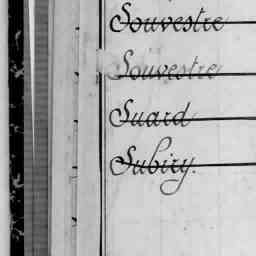 Souvestre
Souvestre
Suard
Subiry.